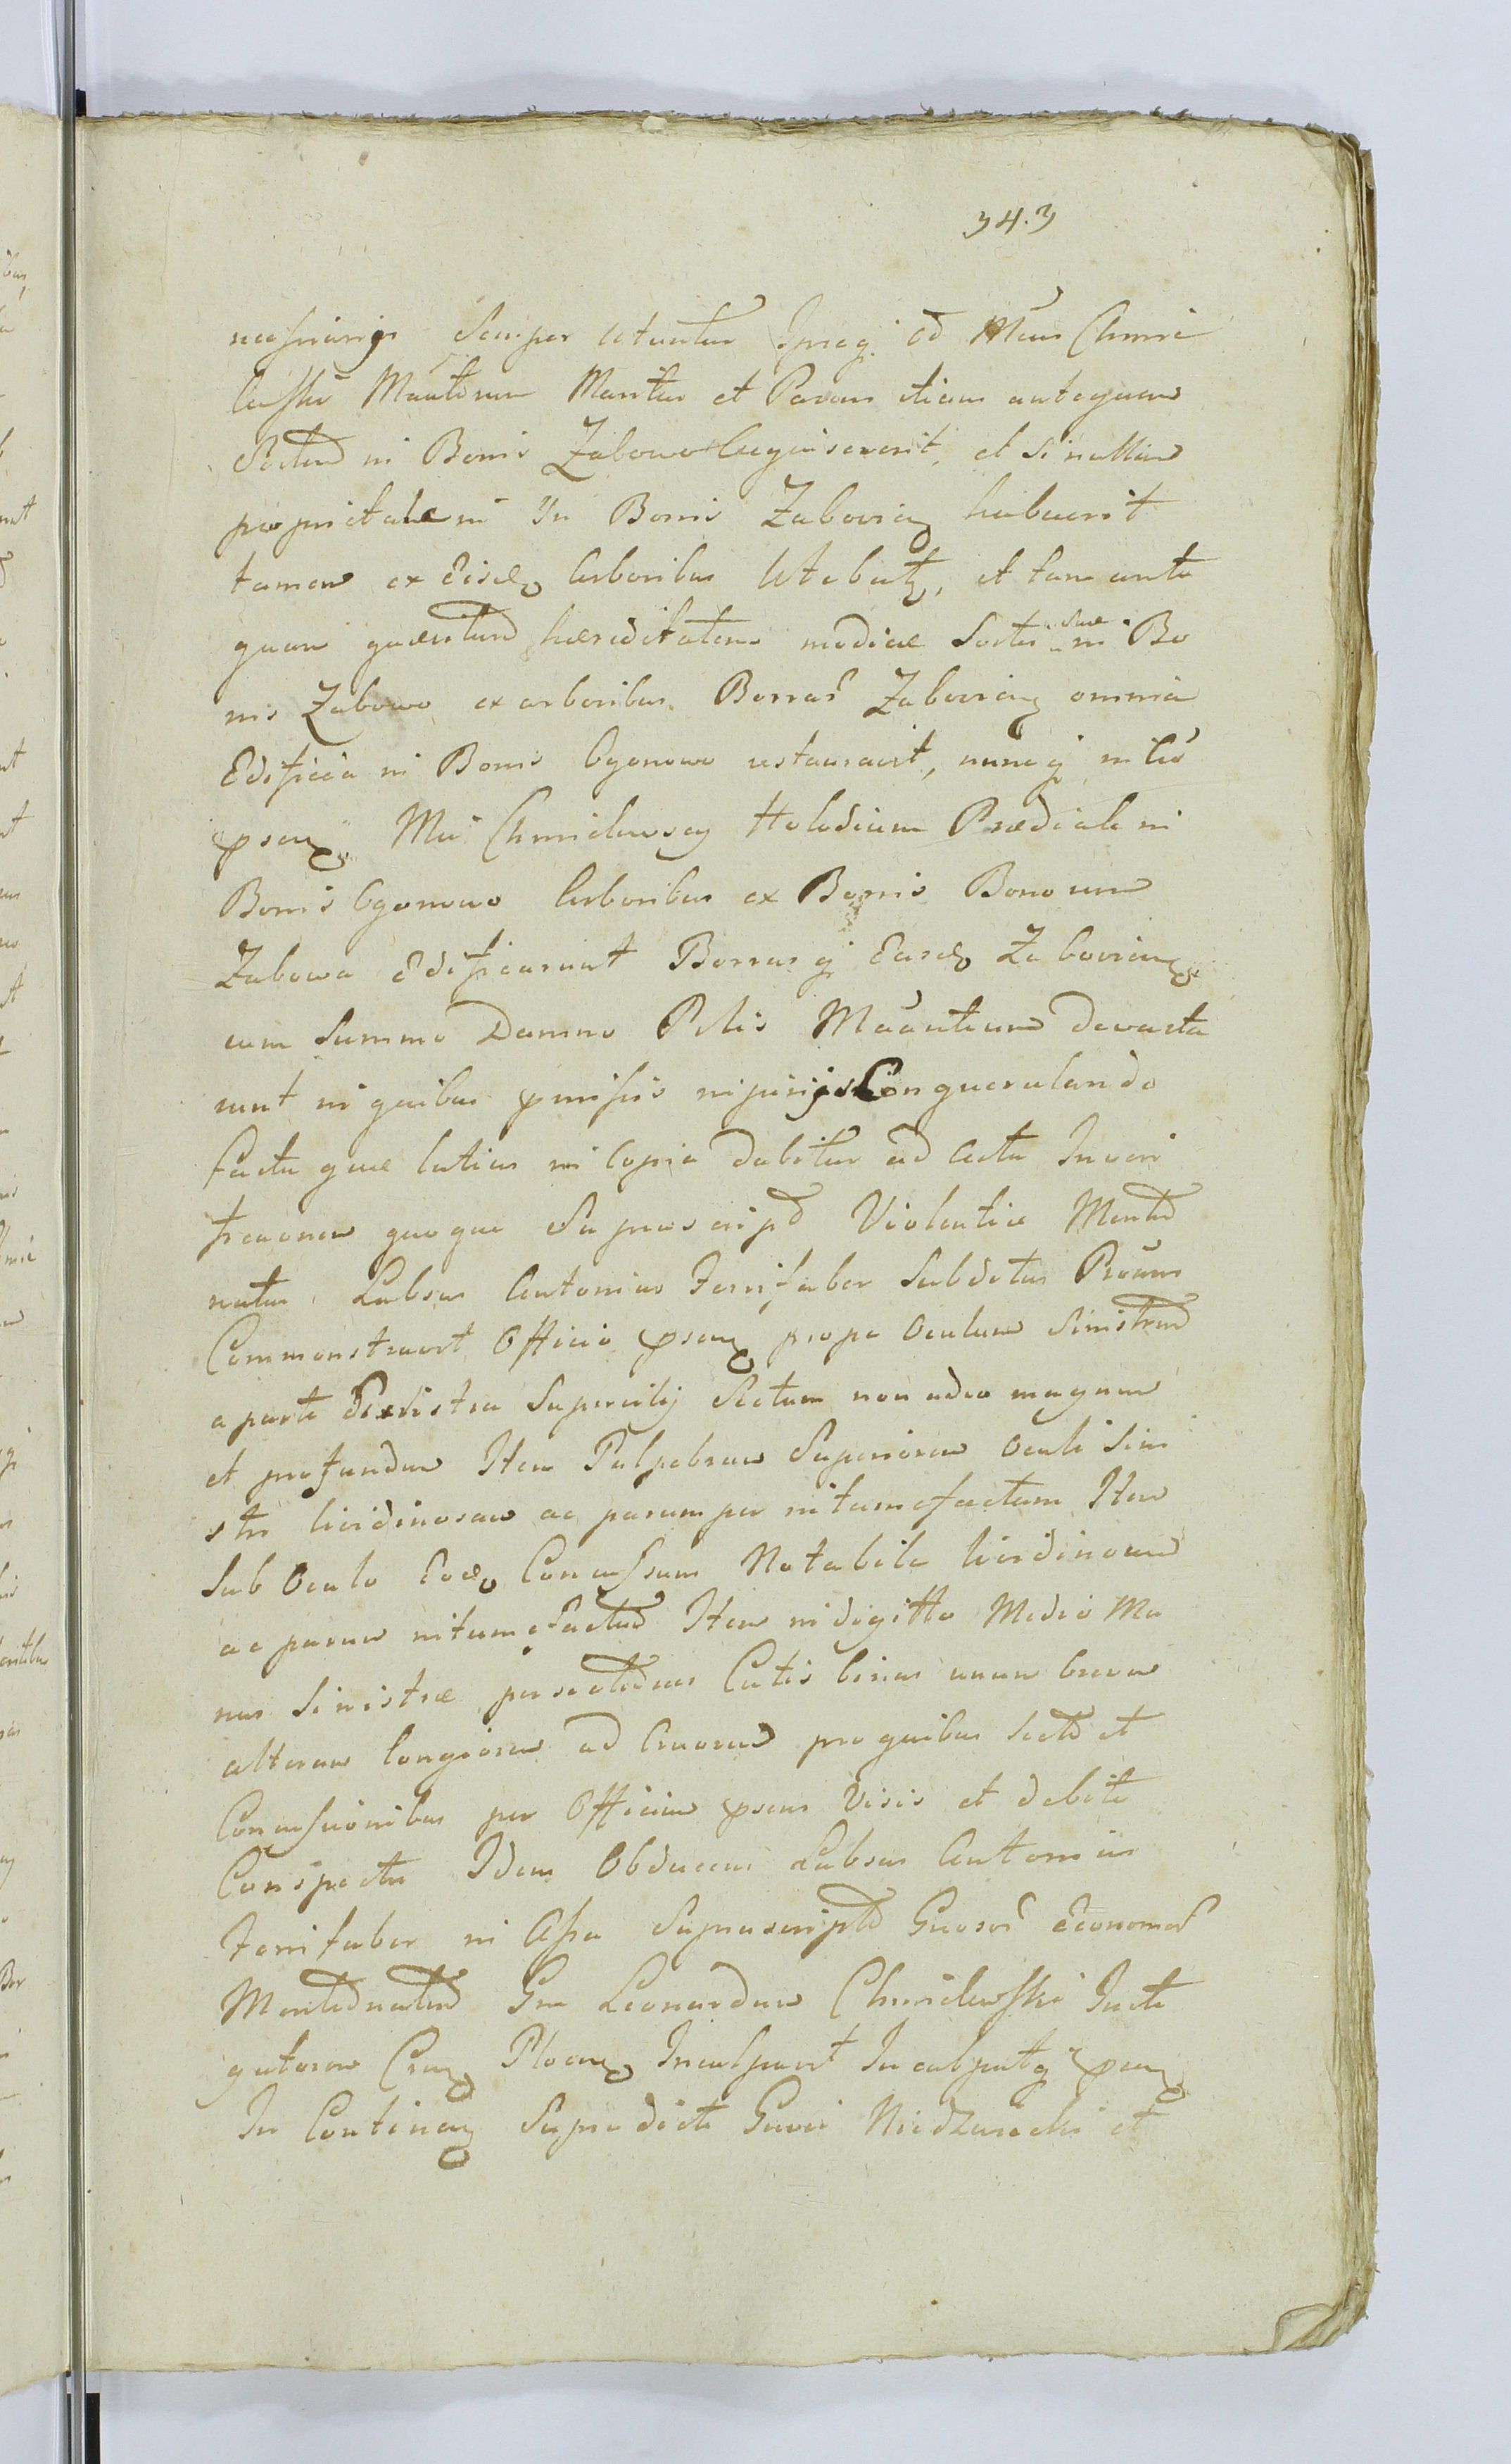 343
necessarijs semper utuntur Ipseq. idē Mčus Chmie
lewski Mandrium Maritus et Parens etiam antequam
Sortem in Bonis Zabowo acquiserverit, et si nullam
proprietatem in Bonis Zabovien habuerit
tamen ex eisd arboribus utebatq, et tam ante
quam quæsitam hæreditatem modicæ Sortis suæ in Bo
nis Zabowo ex arboribus Borras Zabovien omnia
Edificia in Bonis Ogonowo restauravit, nuncq
psens Mci Chmielewscy Holodium Prædiale in
Bonis Ogonowo arboribus ex Bonis Bonorum
Zabowo Edificarunt Borrasq Easd Zabovien
cum summo Damno Ptlis Madntium devasta
runt in quibus pmissis injurijs Conquerulando
facta quæ latius in Copia dabitur ad Acta In veri
ficaonem quoque Suprascript Violentiæ Mentio
natus Labsus Antonius Ferrifaber Subditus Proum
Commonstravit Officio psen prope Oculum Sinistrum
a parte dexistra Supercilij Sectum non adeo magnum
et profundum Item Palpebram Superiorem Oculi Sini
stri lividinosam ac parumper intumefactam Item
sub Oculo Eod Concussum Notabile lividinosum
ac parum intumefactum Item in digitto Medio Ma
nus Sinistræ persectiones Cutis binas unam brevem
alteram longiorem ad Cruorem pro quibus sect et
Concussionibus per Officium psens Visis et debite
Conspectis Idem Obducens Labsus Antonius
Ferrifaber in Assa Suprascript Gnosor Economor
Mentionatum Gm Leonardum Chmielewski Incti
gatorem Plocen Inculpavit Inculpatq psen
In Continen Supradicti Gnosi Niedzwiecki et